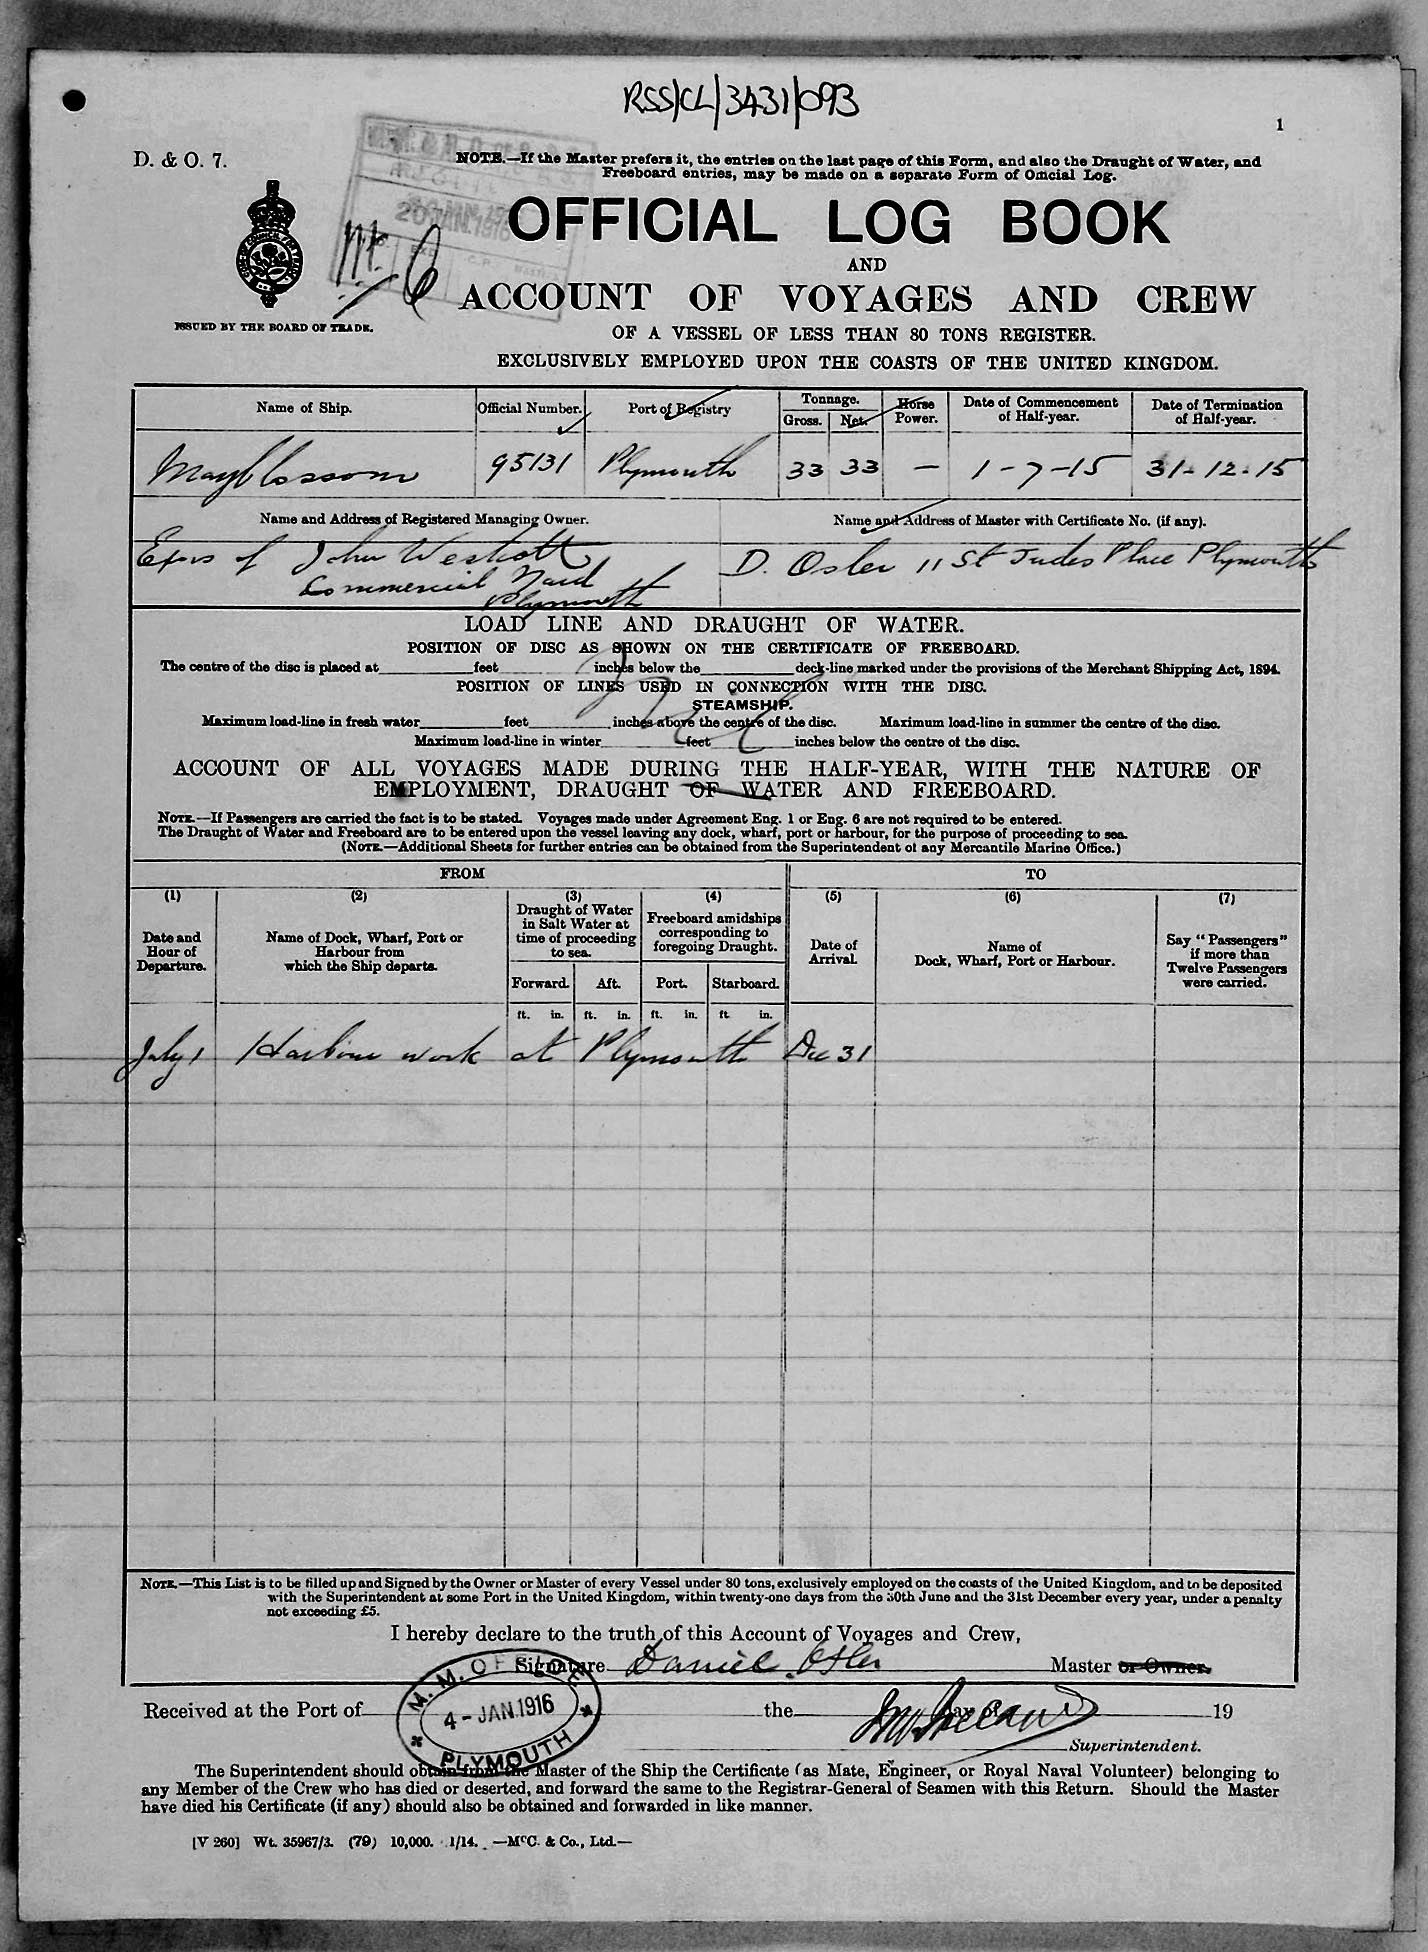 RSS/CL/3431/093
1
D. & O. 7.
NOTE.—If the Master prefers it, the entries on the last page of this Form, and also the Draught of Water, and
Freeboard entries, may be made on a separate Form of Official Log.
20 JAN. 1916
OFFICIAL LOG BOOK
AND
ACCOUNT OF VOYAGES AND CREW
ISSUED BY THE BOARD OF TRADE.
OF A VESSEL OF LESS THAN 80 TONS REGISTER.
EXCLUSIVELY EMPLOYED UPON THE COASTS OF THE UNITED KINGDOM.
Name of Ship. Official Number. Port of Registry Tonnage. Gross. Net. Horse Power. Date of Commencement of Half-year. Date of Termination of Half-year.
Mayblossom 95131 Plymouth 33 33 — 1-7-15 31-12-15
Name and Address of Registered Managing Owner. Name and Address of Master with Certificate No. (if any).
Exors of John Westcott D. Osler 11 St Judes Place Plymouth
Commercial Yard
Plymouth
LOAD LINE AND DRAUGHT OF WATER.
POSITION OF DISC AS SHOWN ON THE CERTIFICATE OF FREEBOARD.
The centre of the disc is placed at feet inches below the deck-line marked under the provisions of the Merchant Shipping Act, 1894.
POSITION OF LINES USED IN CONNECTION WITH THE DISC.
STEAMSHIP.
Maximum load-line in fresh water feet inches above the centre of the disc. Maximum load-line in summer the centre of the disc.
Maximum load-line in winter feet inches below the centre of the disc.
Nil
ACCOUNT OF ALL VOYAGES MADE DURING THE HALF-YEAR, WITH THE NATURE OF
EMPLOYMENT, DRAUGHT OF WATER AND FREEBOARD.
NOTE.—If Passengers are carried the fact is to be stated. Voyages made under Agreement Eng. 1 or Eng. 6 are not required to be entered.
The Draught of Water and Freeboard are to be entered upon the vessel leaving any dock, wharf, port or harbour, for the purpose of proceeding to sea.
(NOTE.—Additional Sheets for further entries can be obtained from the Superintendent of any Mercantile Marine Office.)
FROM TO
(1) (2) (3) (4) (5) (6) (7)
Date and Hour of Departure. Name of Dock, Wharf, Port or Harbour from which the Ship departs. Draught of Water in Salt Water at time of proceeding to sea. Freeboard amidships corresponding to foregoing Draught. Date of Arrival. Name of Dock, Wharf, Port or Harbour. Say "Passengers" if more than Twelve Passengers were carried.
Forward. Aft. Port. Starboard.
ft. in. ft. in. ft. in. ft in.
July 1 Harbour work at Plymouth Dec 31
NOTE.—This List is to be filled up and Signed by the Owner or Master of every Vessel under 80 tons, exclusively employed on the coasts of the United Kingdom, and to be deposited
with the Superintendent at some Port in the United Kingdom, within twenty-one days from the 30th June and the 31st December every year, under a penalty
not exceeding £5.
I hereby declare to the truth of this Account of Voyages and Crew,
Signature Daniel Osler Master or Owner.
M. M. OFFICE
4-JAN.1916
PLYMOUTH
Received at the Port of the day of 19
Superintendent.
The Superintendent should obtain from the Master of the Ship the Certificate (as Mate, Engineer, or Royal Naval Volunteer) belonging to
any Member of the Crew who has died or deserted, and forward the same to the Registrar-General of Seamen with this Return. Should the Master
have died his Certificate (if any) should also be obtained and forwarded in like manner.
[V 260] Wt. 35967/3. (79) 10,000. 1/14. —McC. & Co., Ltd.—